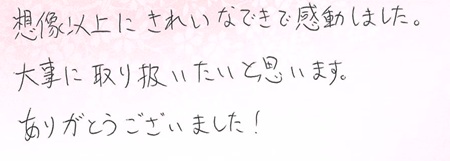 想像以上にきれいなできで感動しました。
大事に取り扱いたいと思います。
ありがとうございました!